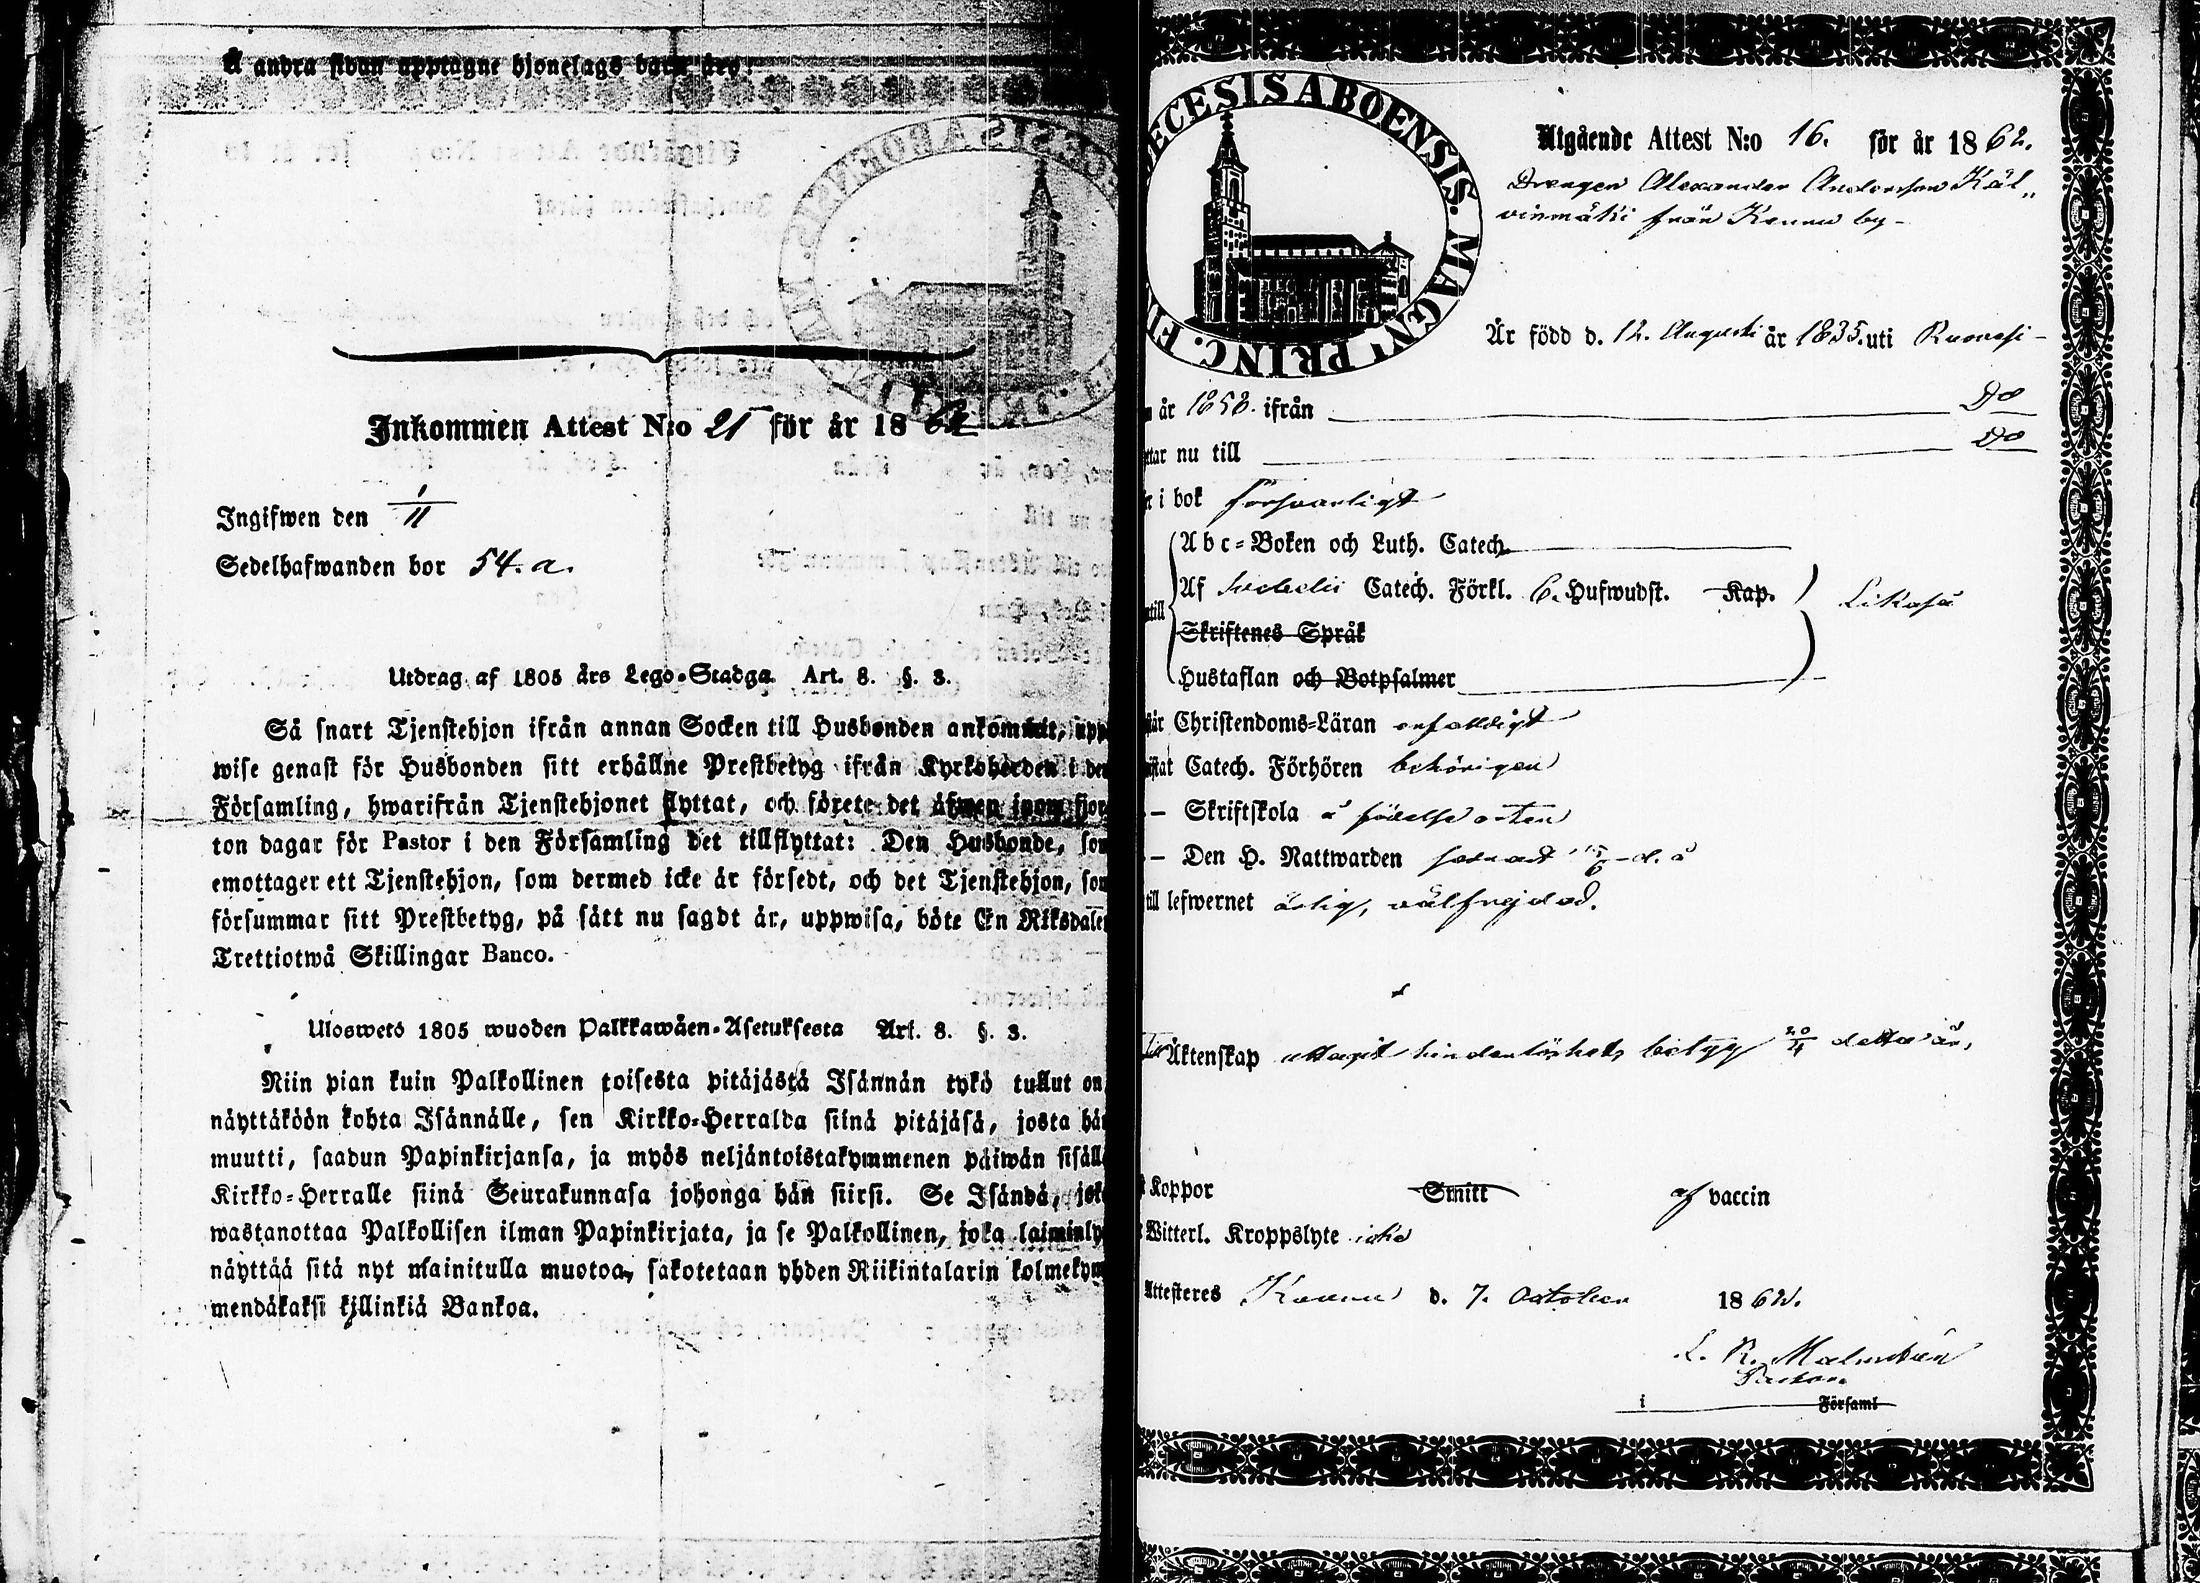 Å andra sidan upptagne hjonelags barn äro:
Inkommen Attest N:o 25 för år 1862
Ingifwen den 1/11
Sedelhafwanden bor 54. a.
Utdrag af 1805 års Lego-Stadga Art. 8. §. 3.
Så snart Tjenstehjon ifrån annan Socken till Husbonden ankommit, upp
wise genast för Husbonden sitt erhållne Prestbetyg ifrån Kyrkoherden i den
Församling, hwarifrån Tjenstehjonet flyttat, och förete det äfwen inom fjor
ton dagar för Pastor i den Församling det tillflyttat: Den Husbonde, som
emottager ett Tjenstehjon, som dermed icke är försedt, och det Tjenstehjon, som
försummar sitt Prestbetyg, på sätt nu sagdt är, uppwisa, böte En Riksdaler
Trettiotwå Skillingar Banco.
Uloswets 1805 wuoden Palkkawäen-Asetuksesta Art. 8. §. 3.
Niin pian kuin Palkollinen toisesta pitäjästä Isännän tykö tullut on
näyttäköön kohta Isännälle, sen Kirkko-Herralda siinä pitäjäsä, josta hän
muutti, saadun Papinkirjansa, ja myös neljäntoistakymmenen päiwän sisällä
Kirkko-Herralle siinä Seurakunnasa johonga hän siirsi. Se Isändä, joka
wastanottaa Palkollisen ilman Papinkirjata, ja se Palkollinen, joka laiminly
näyttää sitä nyt mainitulla muotoa, sakotetaan yhden Riikintalarin kolmekym
mendäkaksi killinkiä Bankoa.
ECESIS ABOENSIS. MAGN' PRINC. FI
Utgående Attest N:o 16. för år 1862.
Drengen Alexander Andersson Käl„
vinmäki från Keuru by-
Är född d. 12. Augusti år 1835. uti Ruovesi-
år 1858. ifrån Do
ttar nu till Do
i bok försvarligt
Abc-Boken och Luth. Catech.
Af Svebelii Catech. Förkl. 6. Hufwudst. Kap. Likaså
till
Skriftenes Språk
Hustaflan och Botpsalmer
står Christendoms-Läran enfaldigt
istat Catech. Förhören behörigen
— Skriftskola å födelse orten
— Den H. Nattwarden senast d. å
till lefwernet ärlig, välfrejdad.
Äktenskap uttagit hinderlöshets betyg 20/4 detta år,
Koppor Smitt af vaccin
Witterl. Kroppslyte icke
Attesteres Keuru d. 7. October 1862.
L. R. Malmstén
Pastor.
i Församl